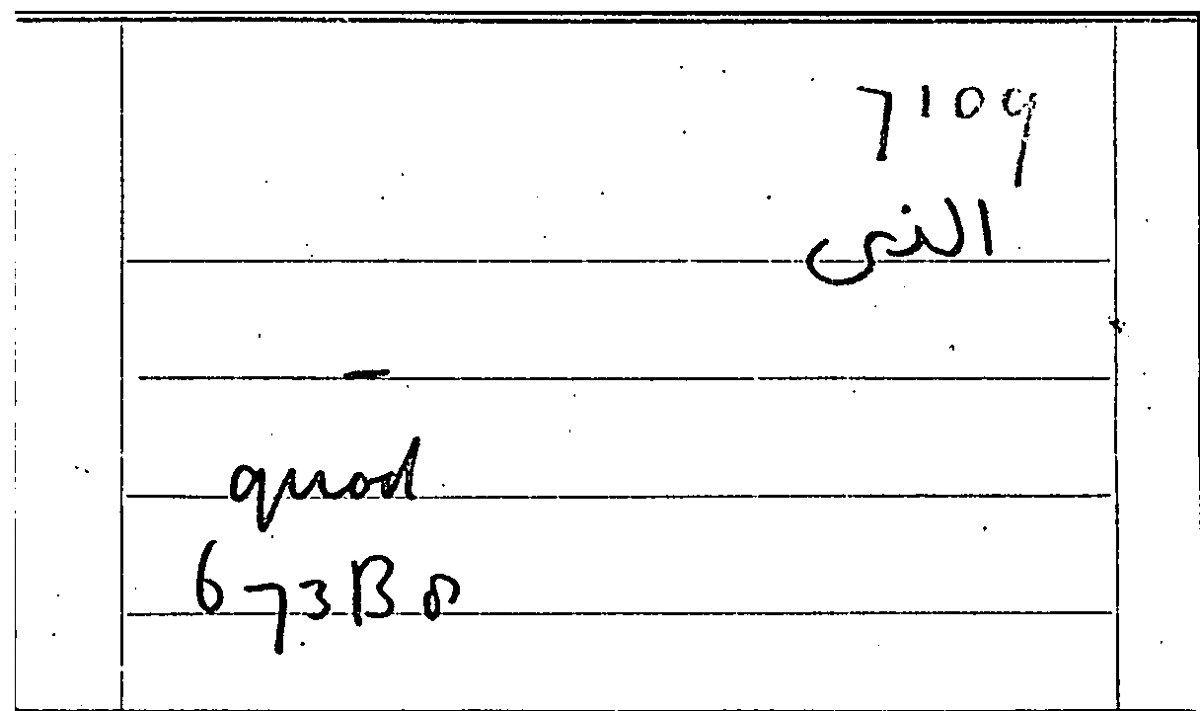 7109
الذى
–
quod
673 B 8